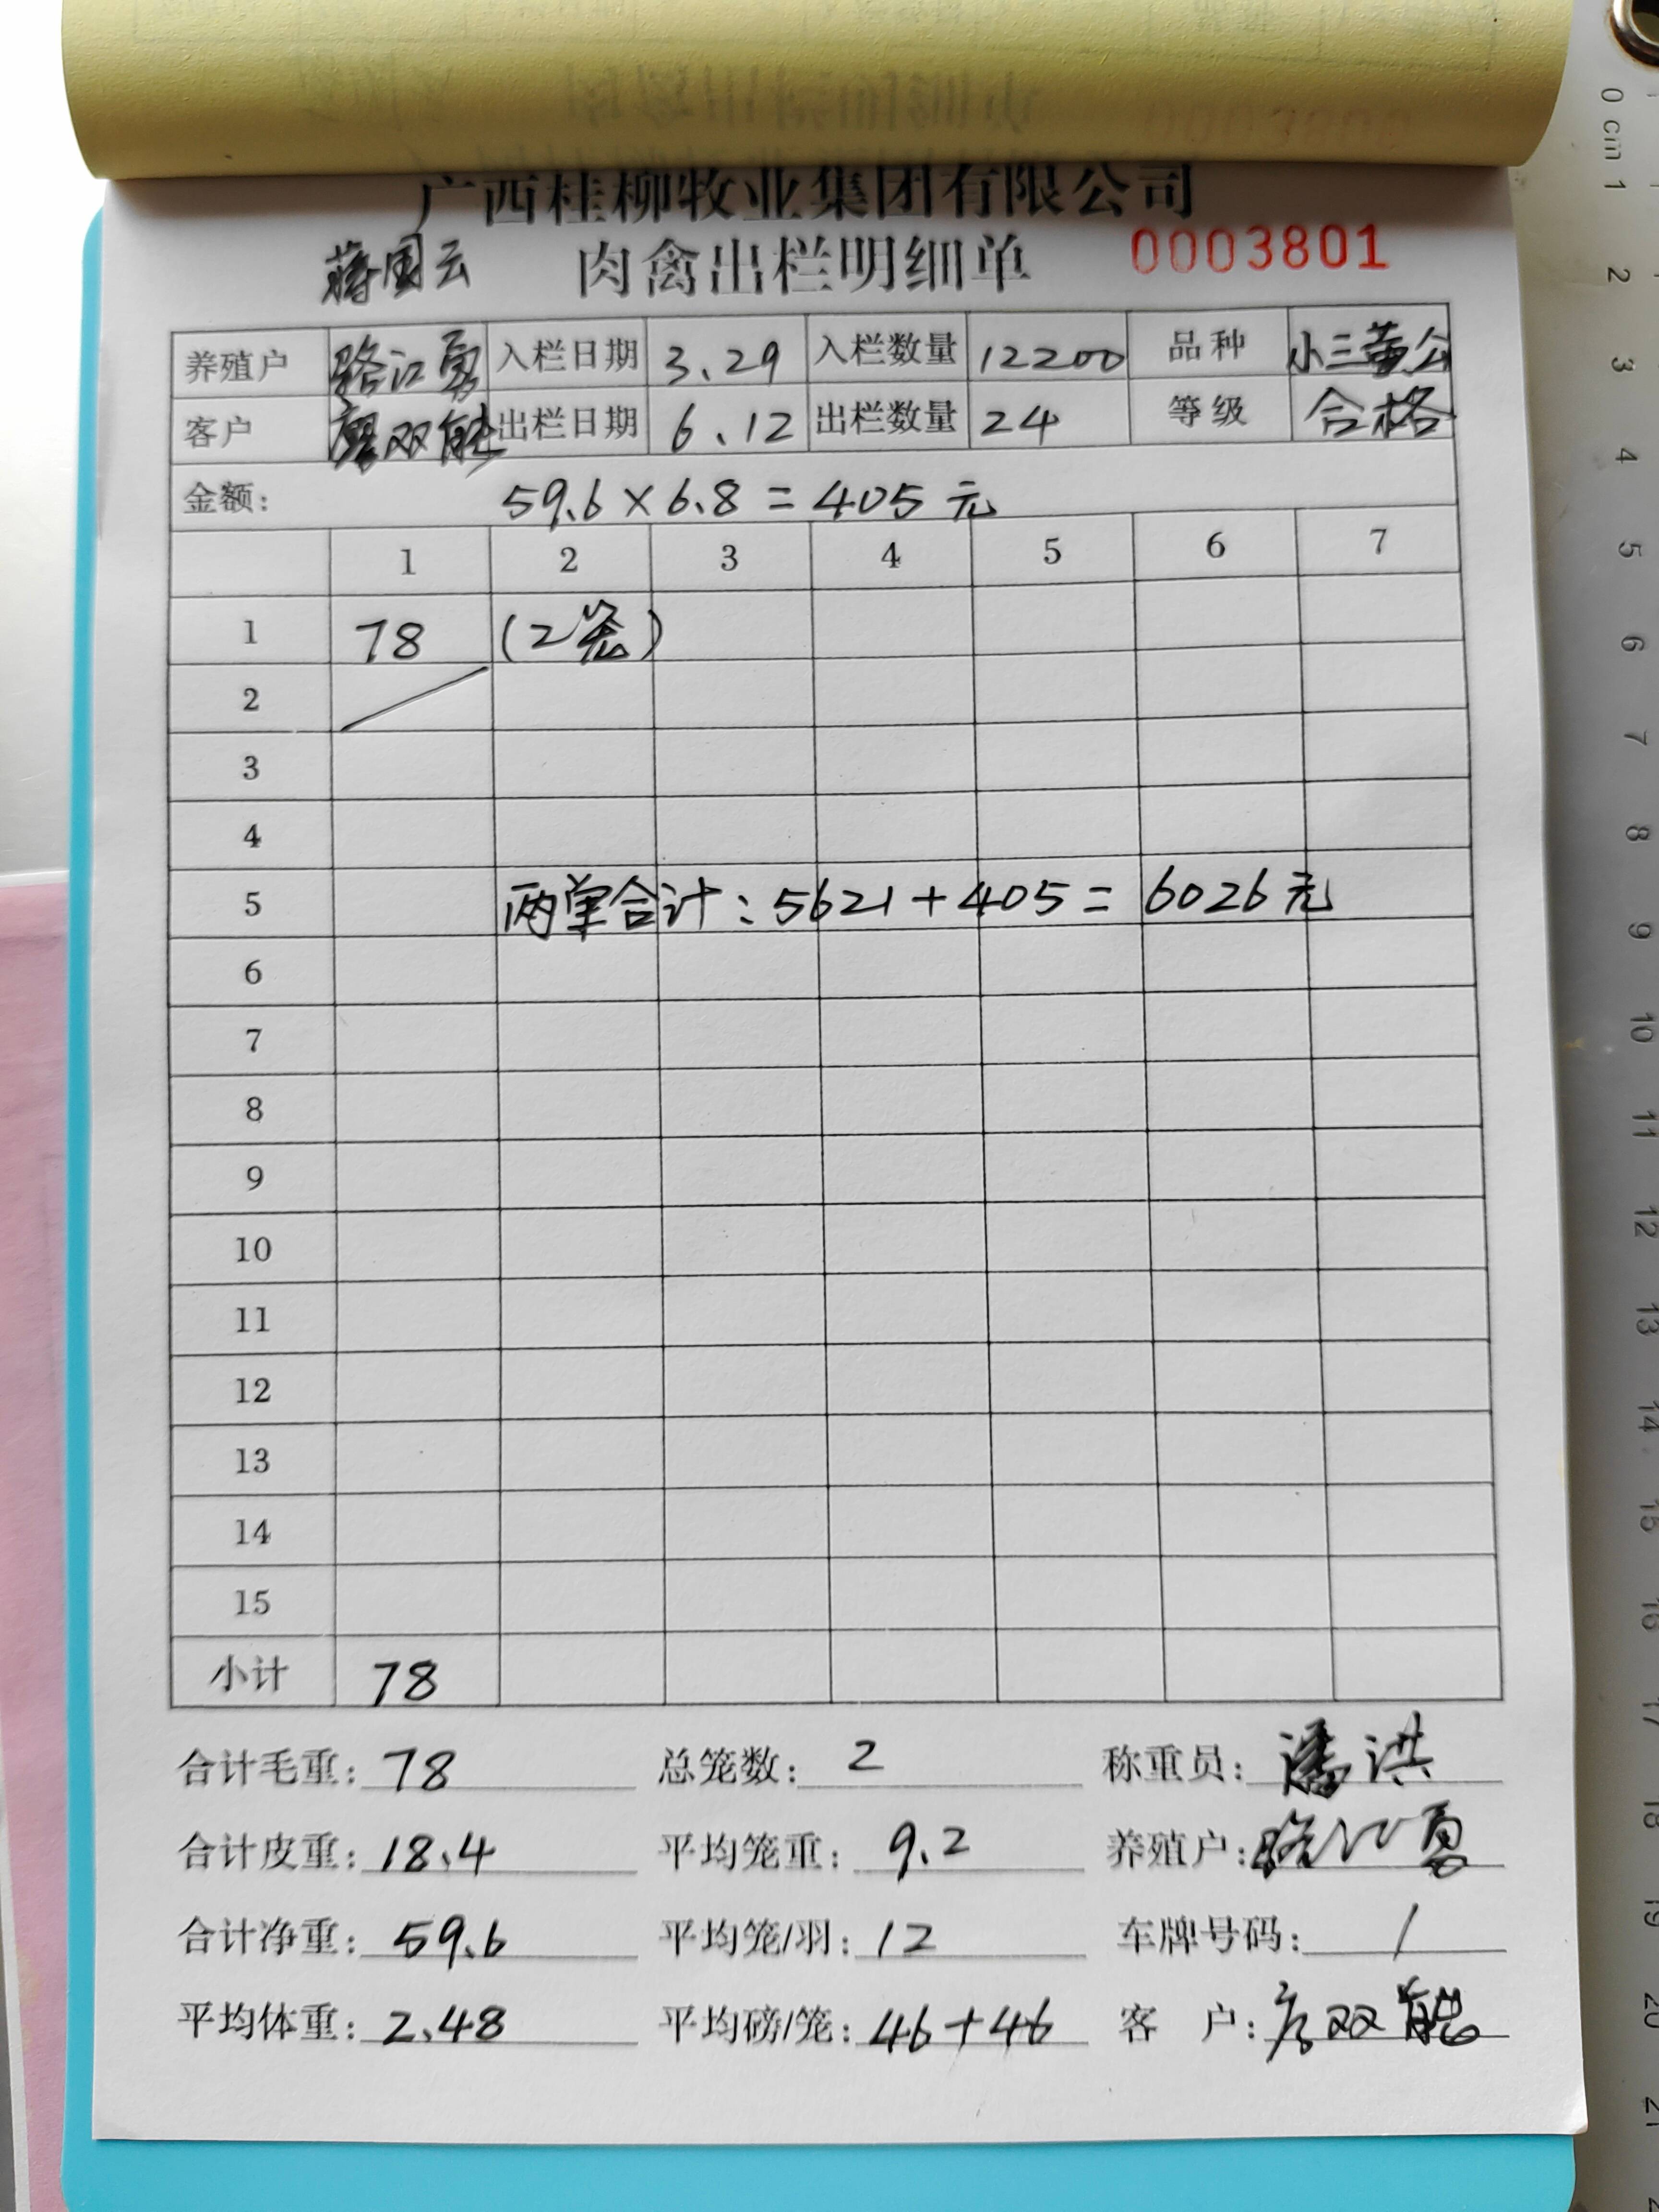 广西桂柳牧业集团有限公司
蒋国云 肉禽出栏明细单 0003801
养殖户 路江勇 入栏日期 3.29 入栏数量 12200 品种 小三黄公
客户 廖双能 出栏日期 6.12 出栏数量 24 等级 合格
金额: 59.6×6.8=405元
1 2 3 4 5 6 7
1 78 (2笼)
2
3
4
5 两单合计:5621+405=6026元
6
7
8
9
10
11
12
13
14
15
小计 78
合计毛重: 78 总笼数: 2 称重员: 潘洪
合计皮重: 18.4 平均笼重: 9.2 养殖户: 路江勇
合计净重: 59.6 平均笼/羽: 12 车牌号码: /
平均体重: 2.48 平均磅/笼: 46+46 客户: 双能
0 cm 1 2 3 4 5 6 7 8 9 10 11 12 13 14 15 16 17 18 19 20 21